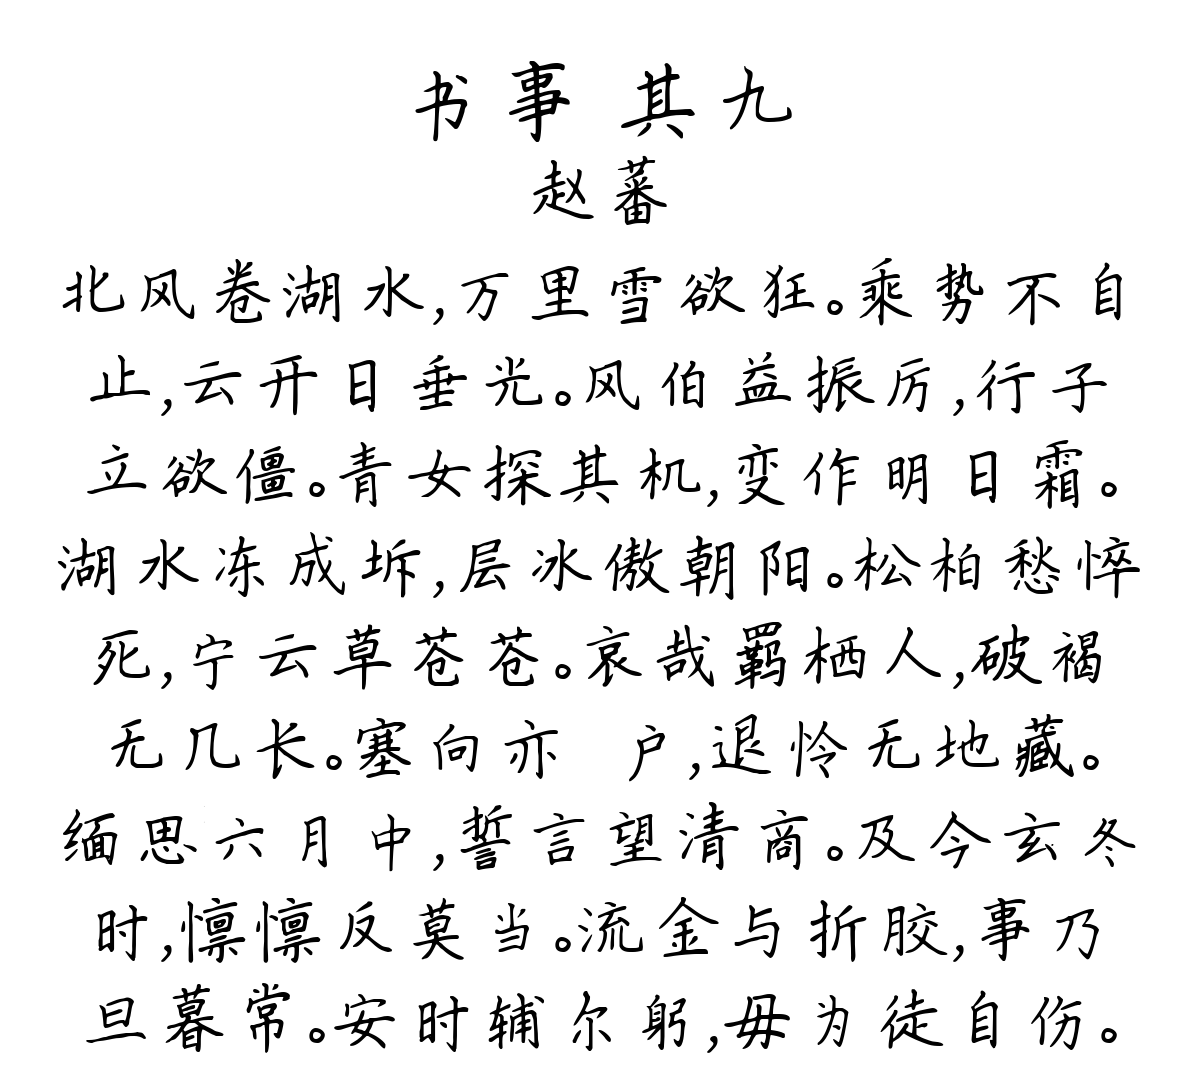 书事 其九
赵蕃
北风卷湖水,万里雪欲狂。乘势不自
止,云开日垂光。风伯益振厉,行子
立欲僵。青女探其机,变作明日霜。
湖水冻成坼,层冰傲朝阳。松柏愁悴
死,宁云草苍苍。哀哉羁栖人,破褐
无几长。塞向亦 户,退怜无地藏。
缅思六月中,誓言望清商。及今玄冬
时,懔懔反莫当。流金与折胶,事乃
旦暮常。安时辅尔躬,毋为徒自伤。